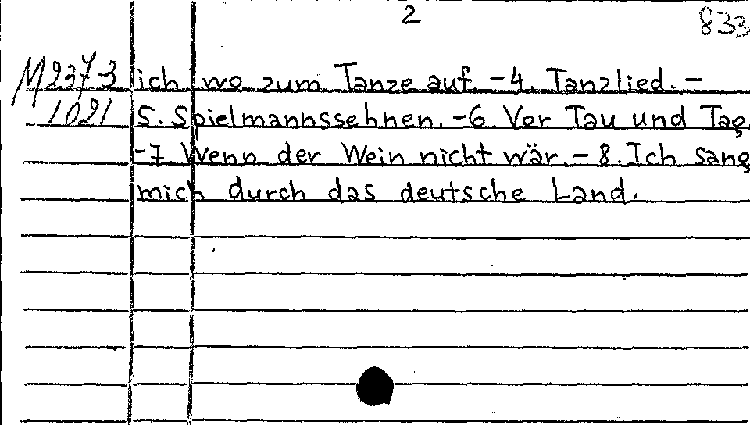 2
833
M 2373
1021
ich wo zum Tanze auf -4. Tanzlied. -
5. Spielmannssehnen. -6. Vor Tau und Tag.
-7 Wenn der Wein nicht wär. - 8. Ich sang
mich durch das deutsche Land.